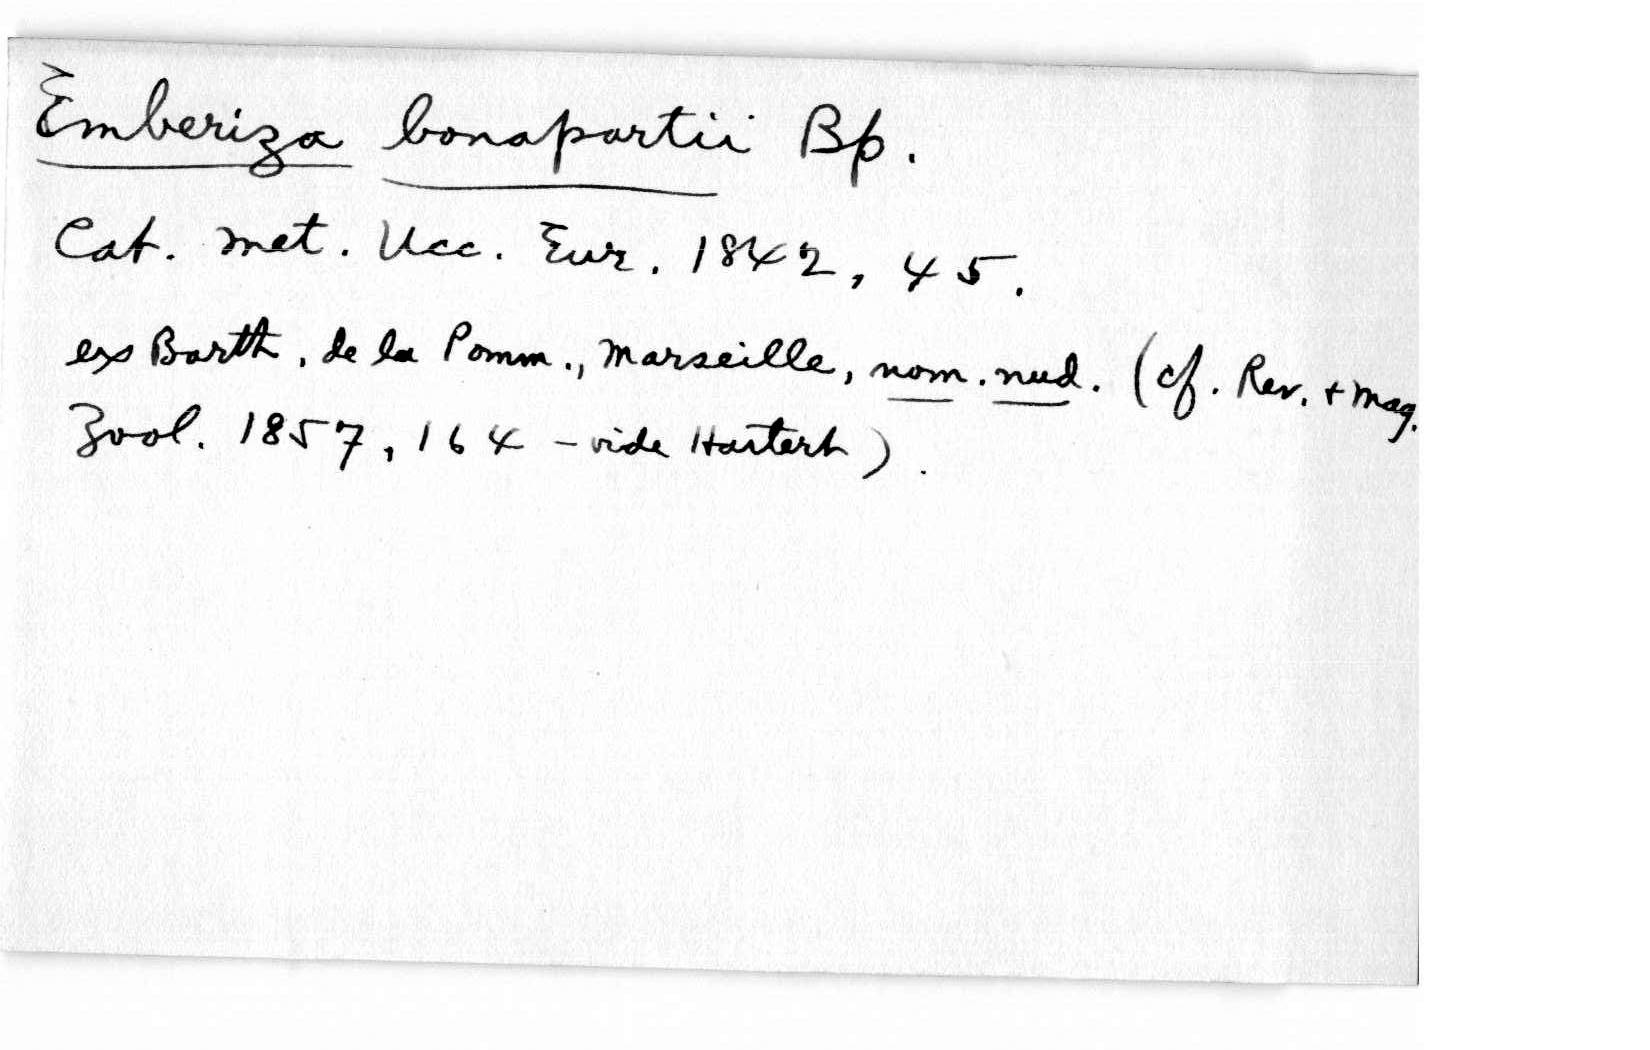 Emberiza bonapartii Bp.
Cat. met. Ucc. Eur. 1842, 45.
ex Barth. de la Pomm., Marseille, nom. nud. (cf. Rev. + Mag.
Zool. 1857, 164 - vide Hartert).